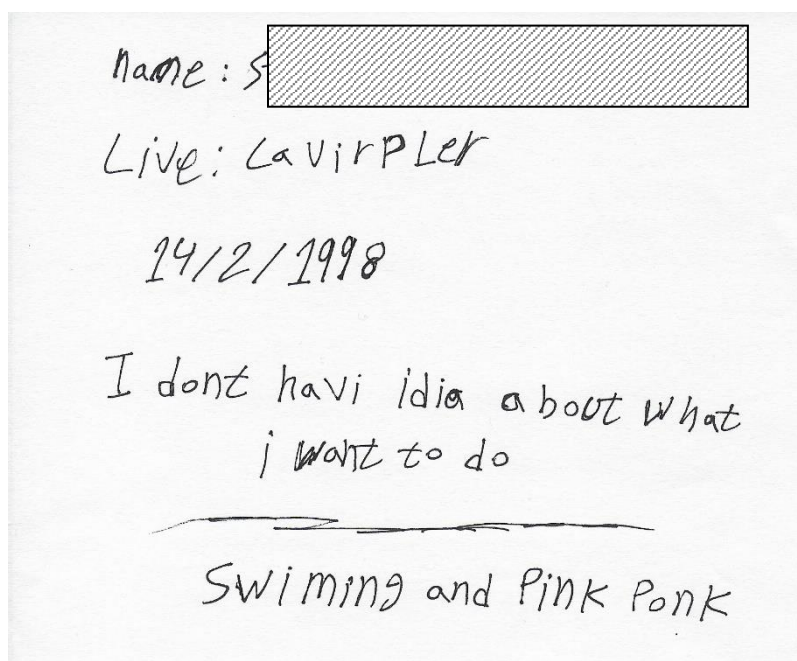 name: S
Live: LavirPLer
14/2/1998
I dont havi idia about what
i want to do
Swiming and Pink Ponk